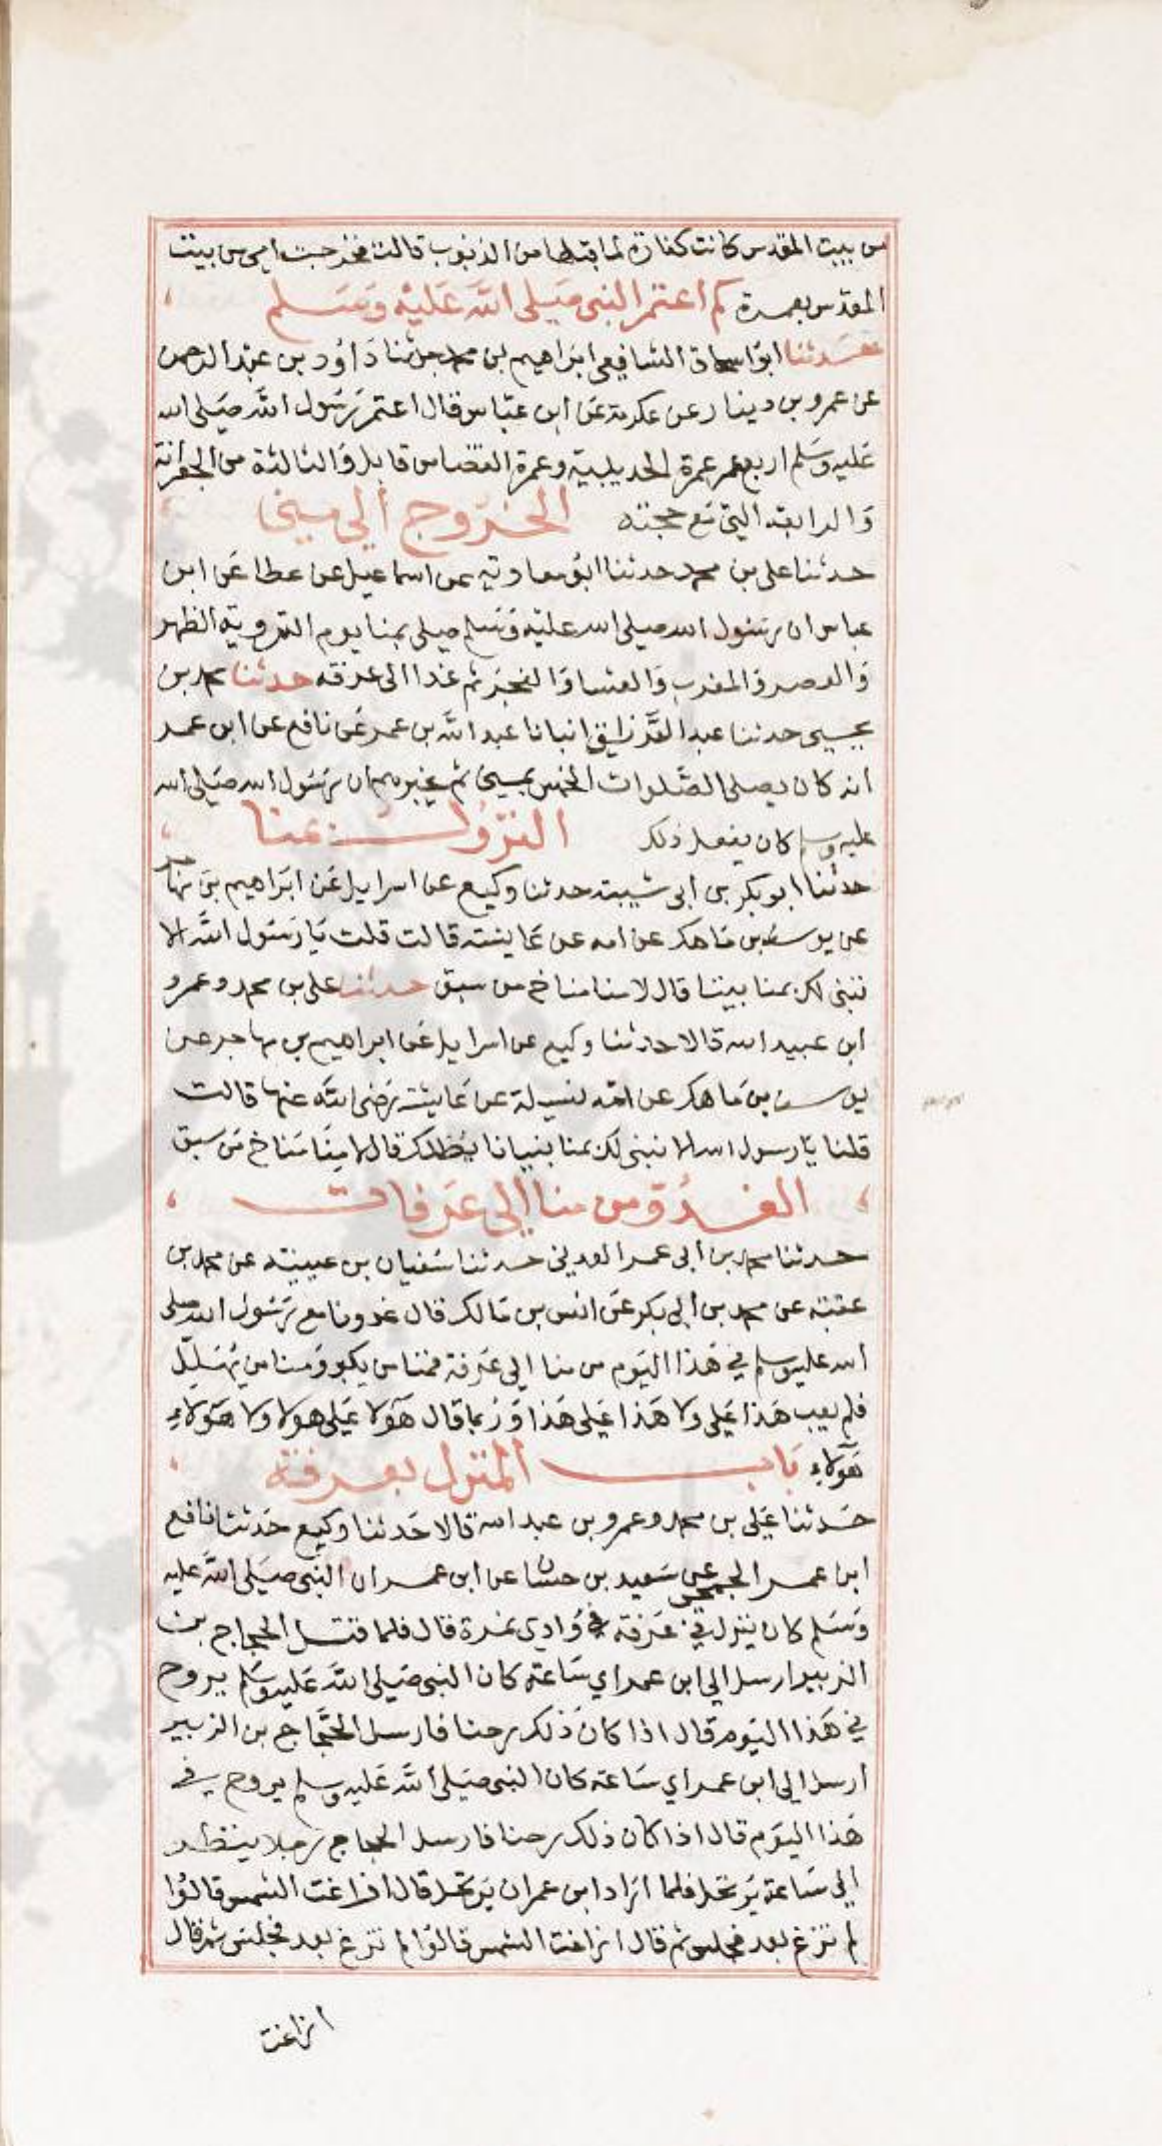 من بيت المقدس كانت كفارة لما قبلها من الذنوب قالت فخرجت امي من بيت
المقدس بعمرة كم اعتمر النبي صَلى الله عَليْه وسَسَلم
حَدثنا ابو اسحاق الشافعي ابراهيم بن محمد حدثنا دَاوُد بن عبد الرحمن
عن عمرو بن دينار عن عكرمة عَن ابن عبّاس قال اعتمر رَسُول الله صَلى الله
عَليه وسَلم اربع عمر عمرة الحديبية وعمرة القضا من قابل وَالثالثة من الجعرانة
وَالرابعة التي مَع حجته الخرُوج إلي مني
حدثنا علي بن محمد حدثنا ابُو معاوية عن اسماعيل عن عطا عَن ابن
عباس ان رسُول الله صلى الله عليه وَسَلم صلي بمنا يوم التروية الظهر
وَالعصر وَالمغرب وَالعشا وَالفجر ثم غدا الى عرفة حدثنا محمد بن
يحيى حدثنا عبد الرَّزاق انبانا عبد الله بن عمر عَن نافع عن ابن عمر
انه كان يصلي الصَّلوات الخمس بمنى ثم يخبرهم ان رَسُول الله صَلى الله
عليه وسلم كان يفعل ذلك النزُول بمنا
حدثنا ابو بكر بن أبى شيبة حدثنا وكيع عن اسرايل عَن ابرَاهيم بن مهاجر
عن يوسف بن مَاهك عن امه عن عَايشه قالت قلت يَا رَسُول الله الا
نبنى لك بمنا بيتا قال لا منا مناخ من سبق حدثنا علي بن محمد وعمرو
ابن عبيد الله قالا حدثنا وكيع عن اسرايل عَن ابراهيم بن مهاجر عن
يوسف بن مَاهك عن امه لنسيلة عن عَايشة رَضي الله عنها قالت
قلنا يَا رسول الله الا نبنى لك بمنا بنيانا يظلك قال لا مِنَا مَناخ مَن سبق
الغدُوّ من منا إلي عَرفات
حدثنا محمد بن أبى عمر العدني حدثنا سُفيان بن عيينه عن محمد بن
عقبة عن محمد بن أبي بكر عَن انس بن مَالك قال غدونا مع رَسُول الله صلى
الله عليه وسلم في هَذا اليَوم من منا الي عَرفة فمنا من يكبر وَمنا من يُهَلِّل
فلم يعب هَذا عَلي ولا هَذا عَلى هَذا وَرُبما قال هَؤلا عَلى هولا ولا هَؤلاءِ
هَؤلاءِ بَاب المنزل بعرفة
حَدثنا عَلي بن محمد وعمرو بن عبد الله قالا حَدثنا وكيع حَدثنا نافع
ابن عمر الجمحي عن سَعيد بن حسان عن ابن عمر ان النبي صَلى الله عَليه
وَسَلم كان ينزل في عَرفة في وَادي نمرة قال فلما قتل الحجاج بن
الزبير ارسل الي ابن عمر اي سَاعة كان النبى صَلى الله عَليه وسَلم يروح
في هَذا اليَوم قال اذا كان ذَلك رحنا فارسل الحَجَّاج بن الزبير
ارسل الي ابن عمر اي سَاعة كان النبى صَلى الله عَليه وسلم يروح في
هَذا اليَوم قال اذا كان ذلك رحنا فارسل الحجاج رَجلا ينظر
الي سَاعة يَرتحل فلما ارَاد ابن عمر ان يَرتحل قال ازاغت الشمس قالوُا
لم تزغ بعد فجلس ثم قال ازاغت الشمس قالوُا لم تزغ بعد فجلس ثم قال
ازاغت